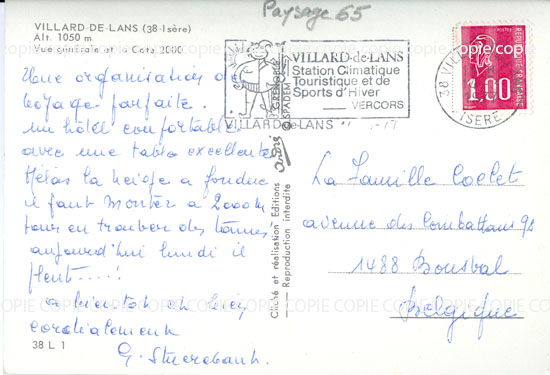 Paysage 65
VILLARD-DE-LANS (38-Isère)
Alt. 1050 m
Vue générale et la Cote 2000
Une organisation de
voyage parfaite.
un hôtel confortable
avec une table excellente
Hélas la neige a fondue
il faut monter à 2000 m
pour en trouver des
aujourd'hui lundi il
pleut....!
a bientot en bien
cordialement
G.
38 L 1
GRENOBLE
© SPADEM
VILLARD-de-LANS
Station Climatique
Touristique et de
Sports d'Hiver
VERCORS
VILLARD-DE-LANS
38 VILL
ISERE
POSTES
REPUBLIQUE FRANÇAISE
1,00
Cliché et réalisation Editions
Reproduction interdite
La Famille Coelet
avenue des Combattants 92
1488 Bousval
Belgique
COPIE COPIE COPIE COPIE COPIE COPIE COPIE COPIE COPIE